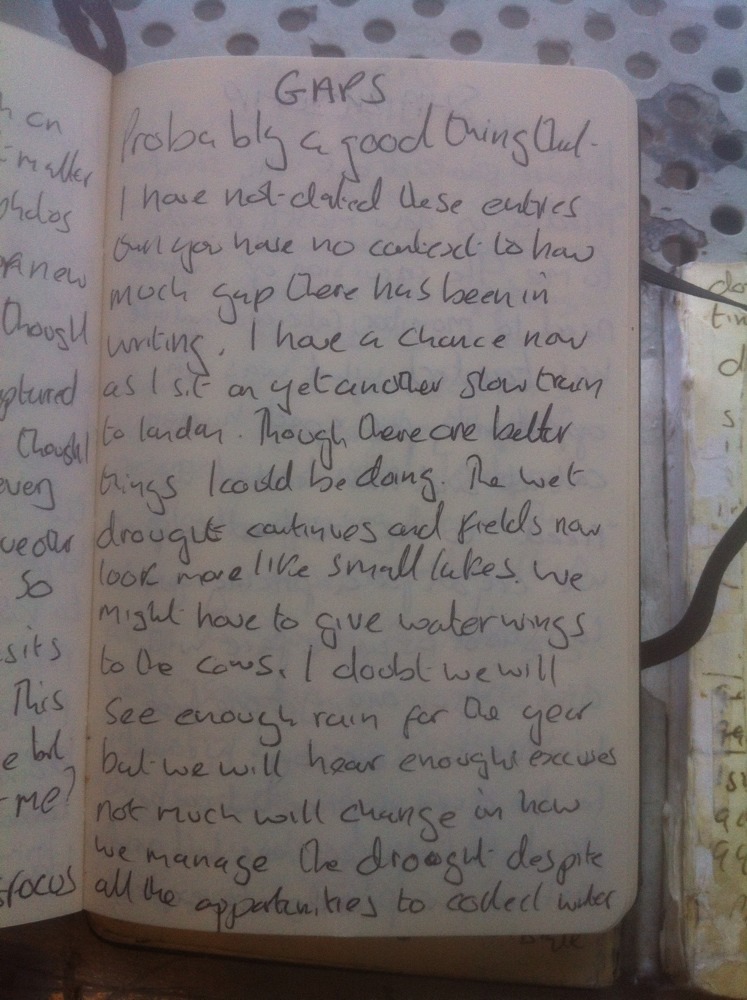 GAPS
Probably a good thing that
I have not dated these entries
then you have no context to how
much gap there has been in
writing. I have a chance now
as I sit on yet another slow train
to london. Though there are better
things I could be doing. The wet
drought continues and fields now
look more like small lakes. We
might have to give waterwings
to the cows. I doubt we will
see enough rain for the year
but we will hear enough excuses
not much will change in how
we manage the drought despite
all the opportunities to collect water
matter
new
though
captured
though
every
So
sits
This
me?
focus